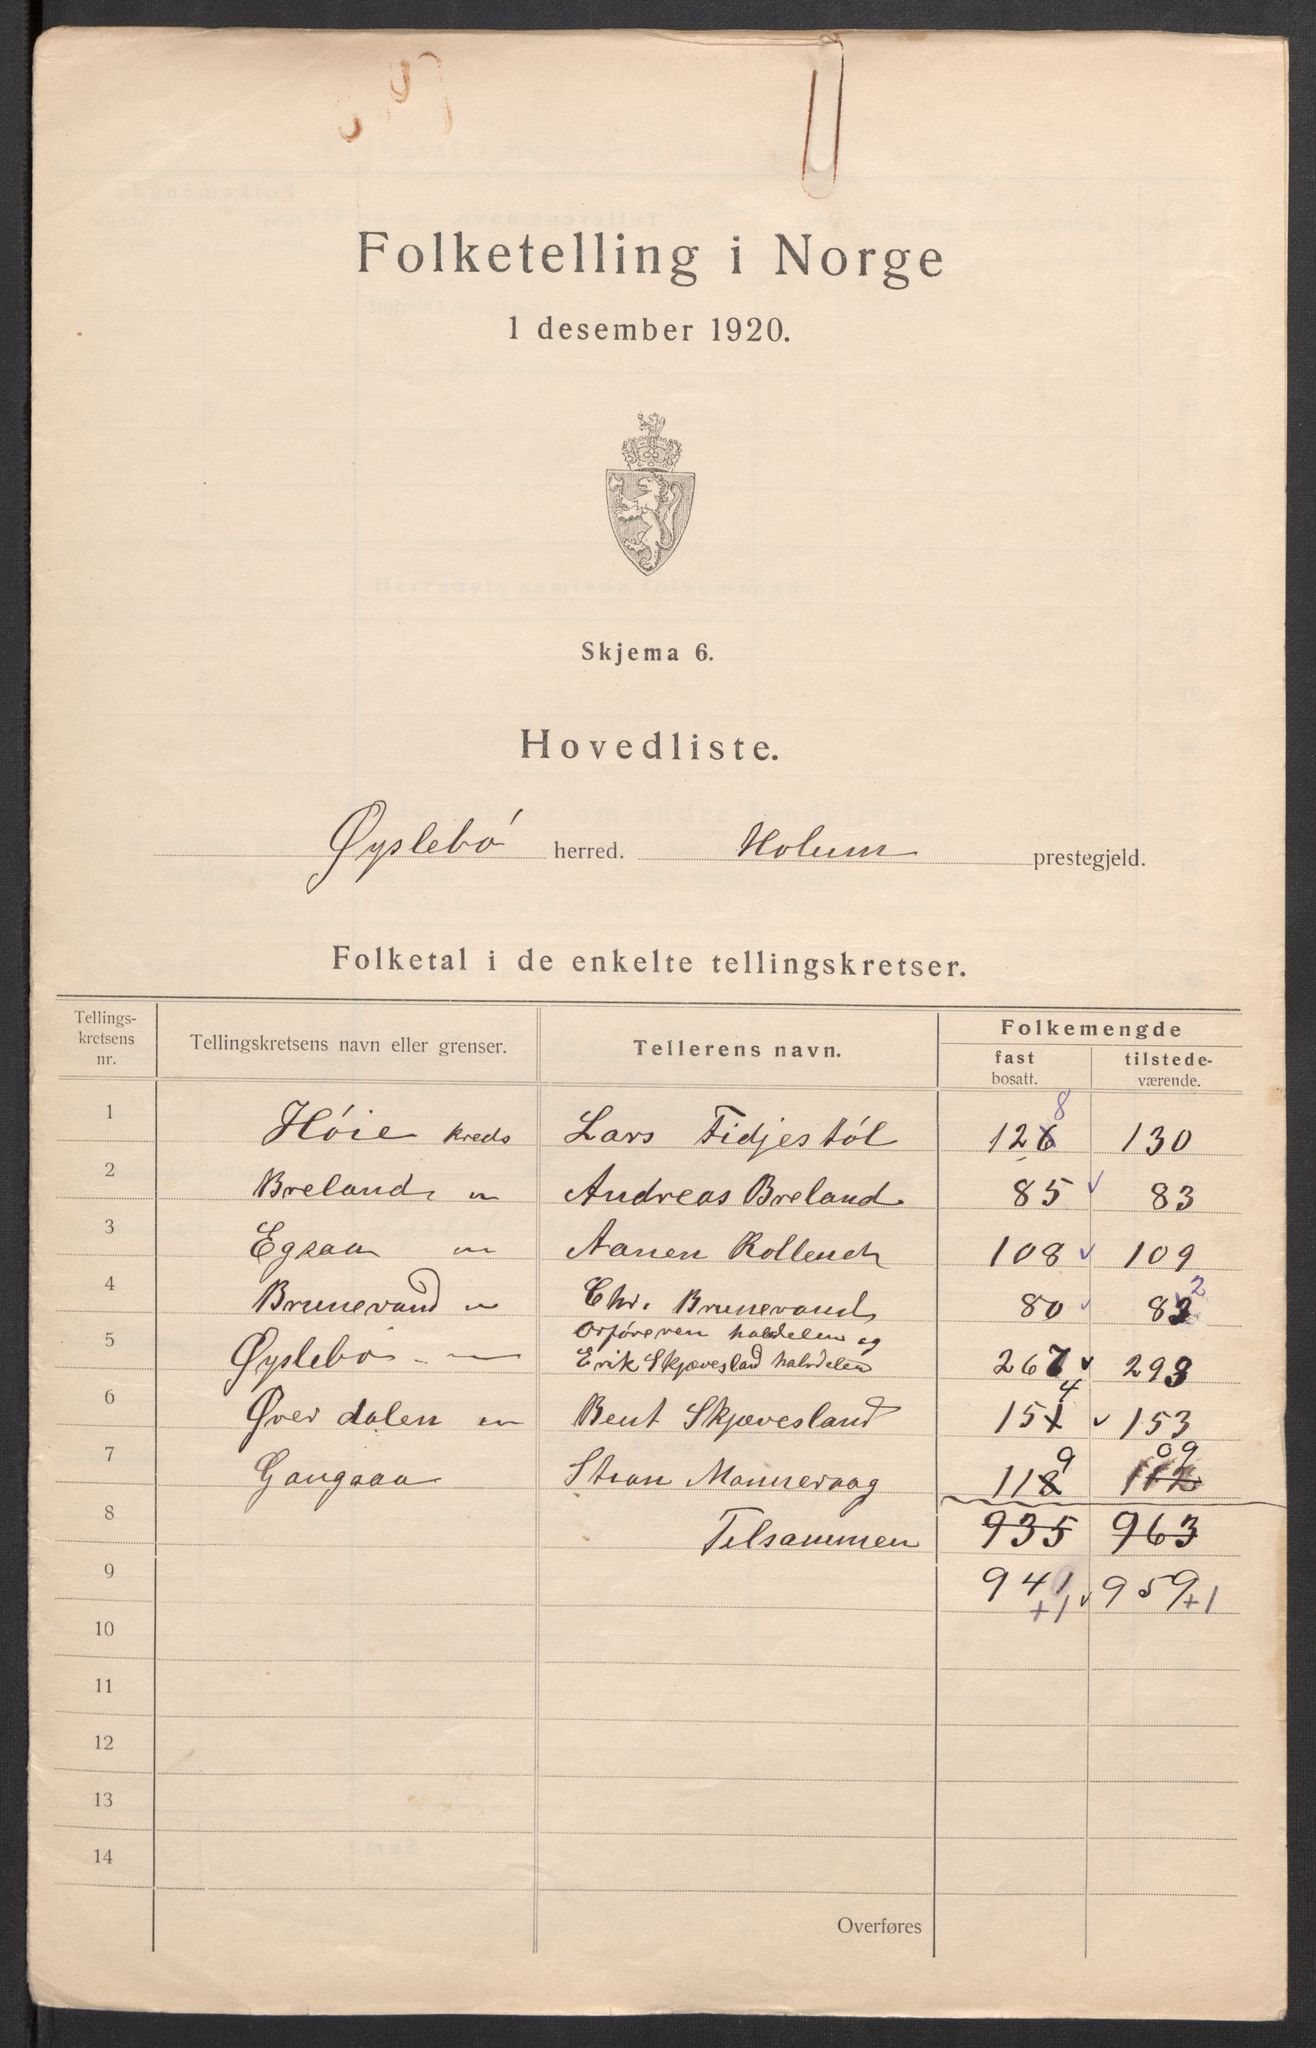 Folketelling i Norge
1 desember 1920.
Skjema 6.
Hovedliste.
Øyslebø herred. Holum prestegjeld.
Folketal i de enkelte tellingskretser.
Tellings-
kretsens
nr.
Tellingskretsens navn eller grenser.
Tellerens navn.
Folkemengde
fast
bosatt.
tilstede-
værende.
8
1 Høie kreds Lars Fidjestøl 126 130
2 Breland " Andreas Breland 85 83
3 Egsaa " Aanen 108 109
2
4 Brunevand " Chr. Brunevand 80 83
halvdelen og
5 Øyslebø " Erik Skjævesland halvdelen 267 293
4
6 Øver dalen " Bent Skjævesland 151 153
9 09
7 Gangsaa Manneraag 118 112
8 Tilsammen 935 963
9 941 959
+1 +1
10
11
12
13
14
Overføres